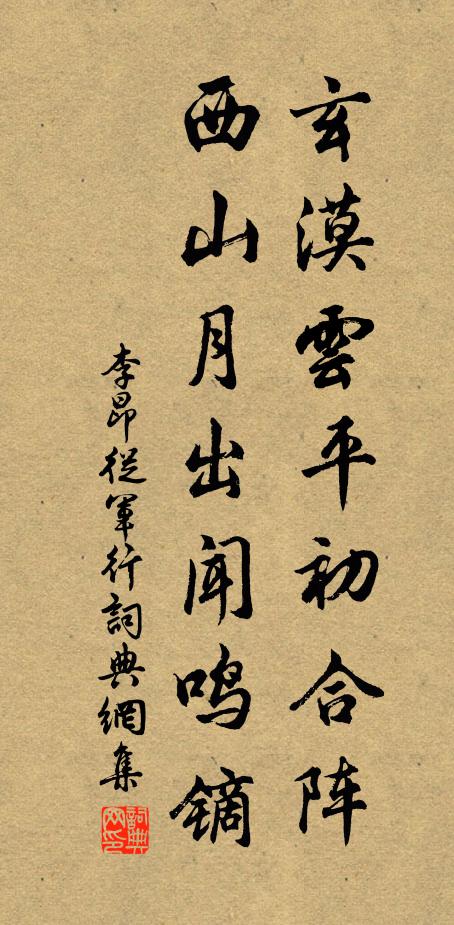 玄漠雲平初合阵
西山月出闻鸣镝
李昂從軍行詞典網集
詞典网印